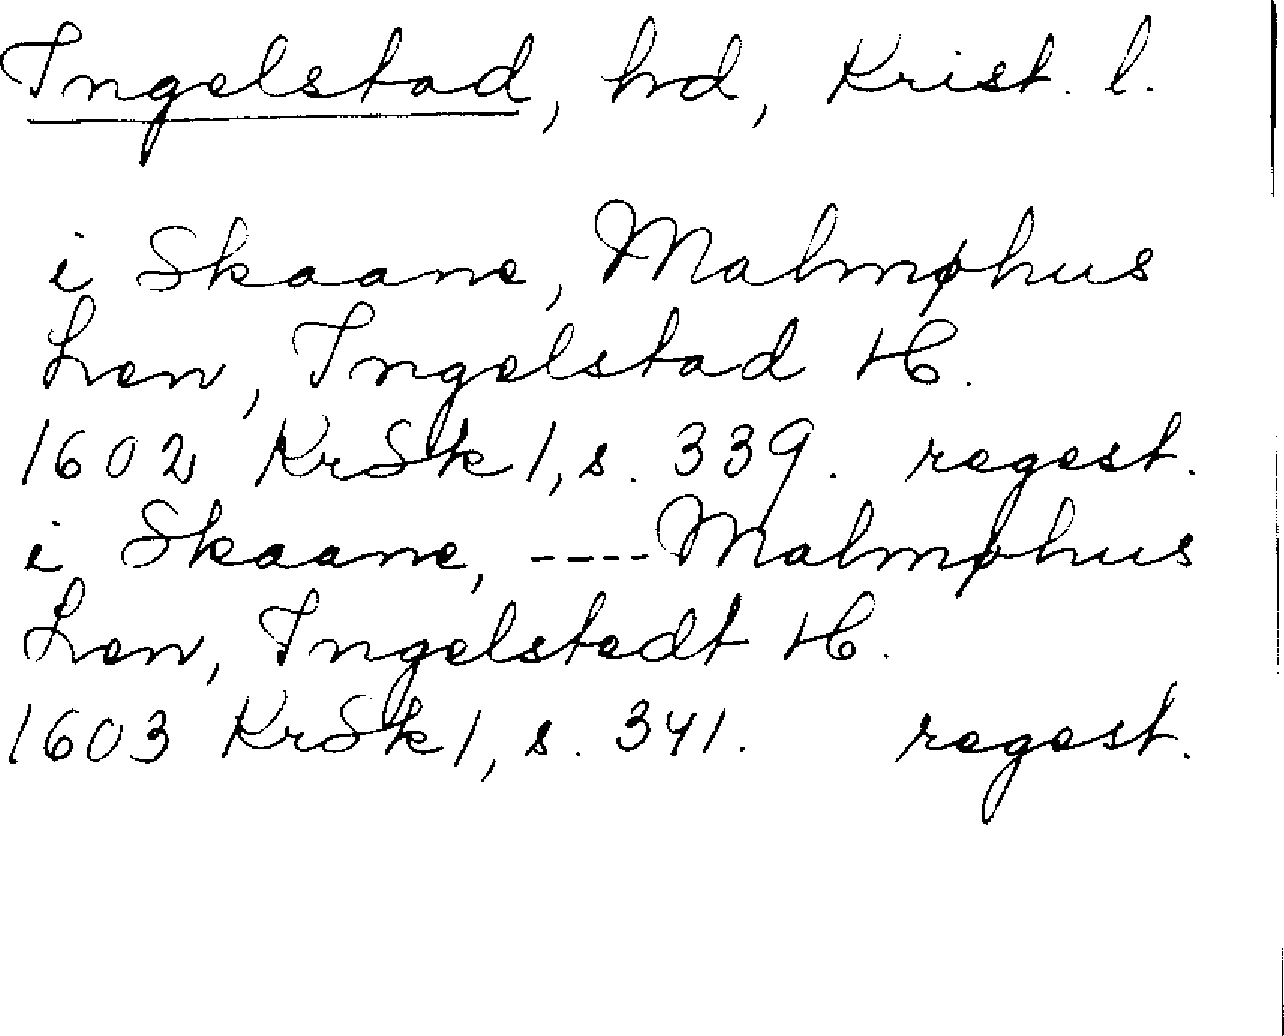 Ingelstad, hd, Krist. l.
i Skaane, Malmøhus
Len, Ingelstad H.
1602 KrSk 1, s. 339. regest.
i Skaane, ---- Malmøhus
Len, Ingelstedt H.
1603 KrSk 1, s. 341. regest.